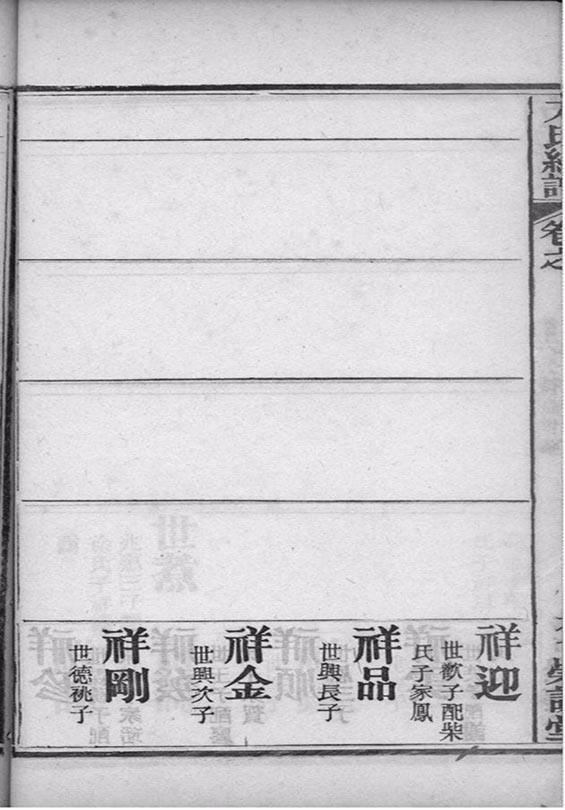 卷之
祥迎
世歡子配柴
氏子家鳳
祥品
世興長子
祥金
世興次子
祥剛
世德祧子